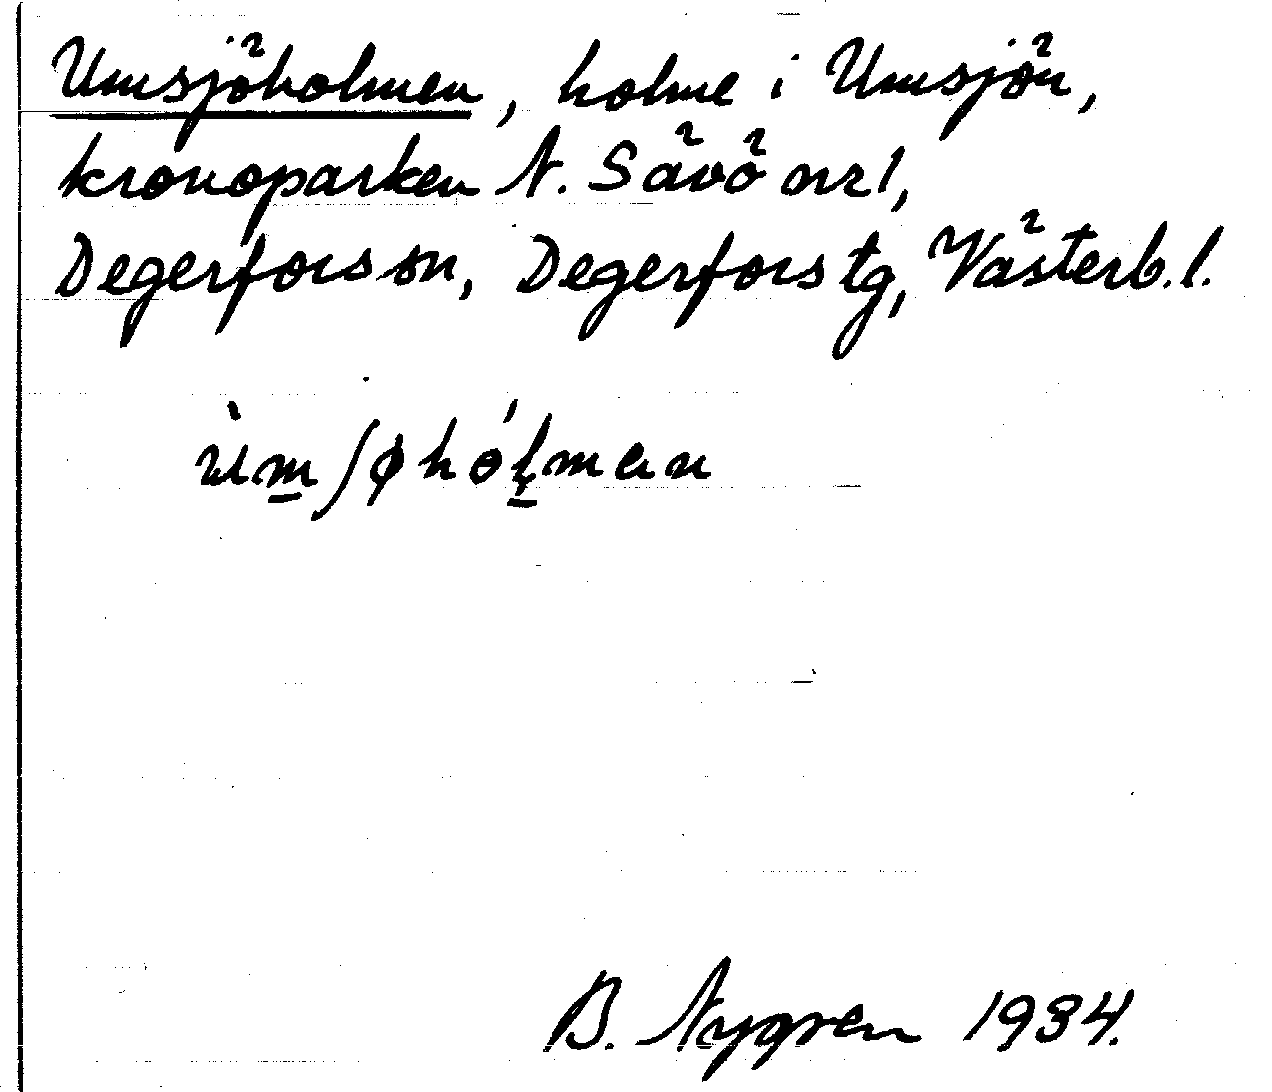 Umsjöholmen, holme i Umsjön,
kronoparken N. Sävö nr 1,
Degerfors sn, Degerfors tg, Västerb. l.
ùm̲ʃøhóɭ̲man
B. Nygren 1934.